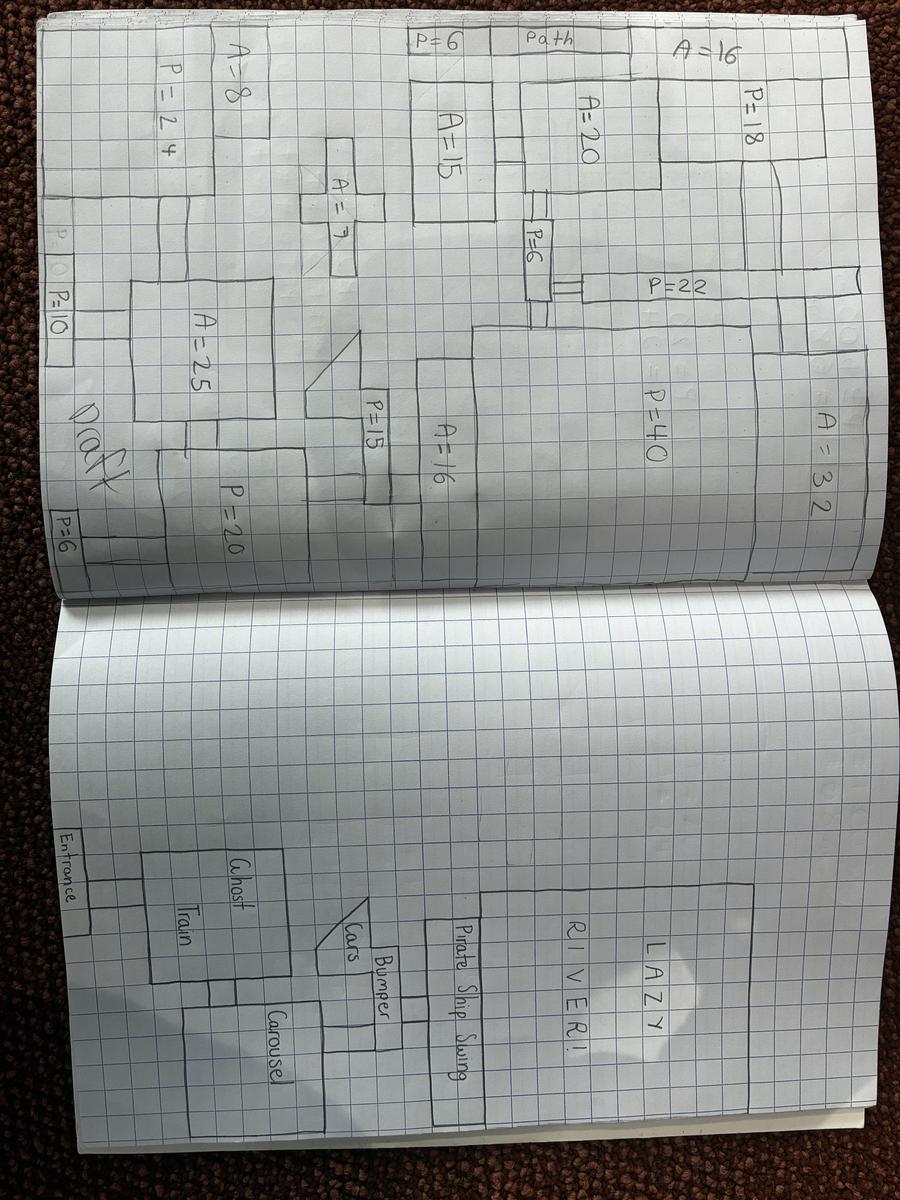 P=6
Path
A=16
A=8
P=24
A=15
A=20
P=18
A=7
P=6
P=22
P=10
A=25
P=15
A=16
P=40
A=32
Draft
P=6
P=20
LAZY
RIVER!
Pirate Ship Swing
Bumper
Cars
Ghost
Train
Carousel
Entrance